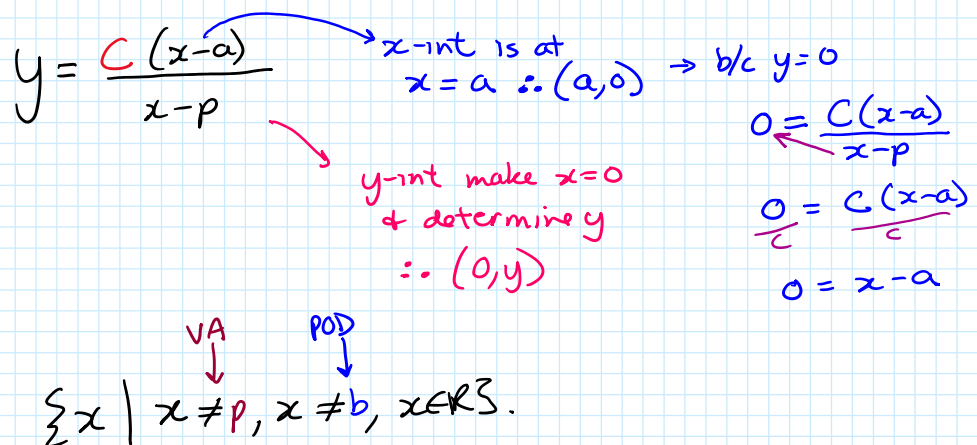 y = C(x-a)/(x-p)
x-int is at
x = a ∴ (a,0)
→ b/c y=0
0 = C(x-a)/(x-p)
0/C = C(x-a)/C
0 = x-a
y-int make x=0
& determine y
∴ (0,y)
VA
POD
{x | x≠p, x≠b, x∈R}.